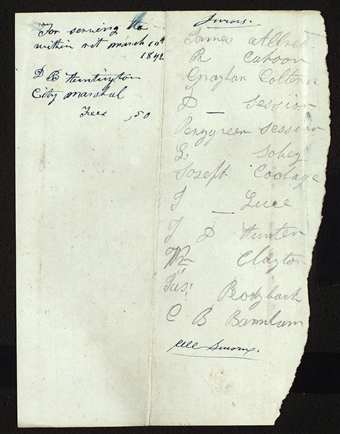 For serving the
within writ march 10th
1842
D B Huntington
City Marshal
Fees ,50
Jurors.
James Allred
R Carson
Graylan Coltern
D — Session
Perygreen Session
L
Joseph Coolage
J — Luce
J D Hunter
Wm Clayton
Jas: Brodyback
C B Barnham
All Sworn.